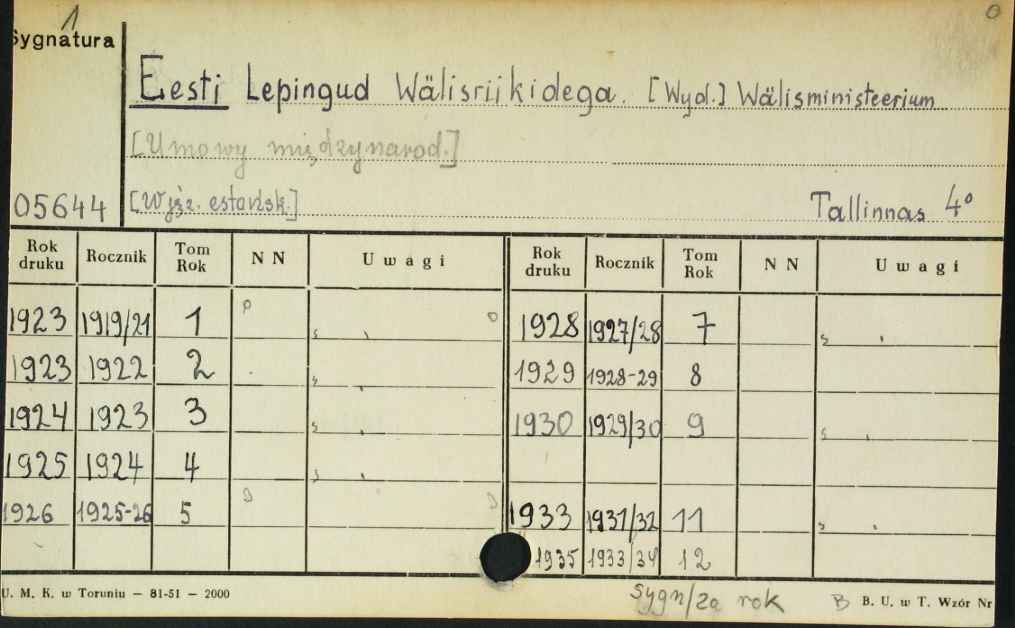 1
Sygnatura
Eesti Lepingud Wälisriikidega. [Wyd.] Wälisministeerium
[Umowy międzynarod.]
05644 [W jęz. estońsk.] Tallinnas 4°
Rok druku Rocznik Tom Rok N N Uwagi Rok druku Rocznik Tom Rok N N Uwagi
1923 1919/21 1 1928 1927/28 7
1923 1922 2 1929 1928-29 8
1924 1923 3 1930 1929/30 9
1925 1924 4
1926 1925-26 5 1933 1931/32 11
1935 1933/34 12
U. M. K. w Toruniu — 81-51 — 2000
sygn/za rok B B. U. w T. Wzór Nr